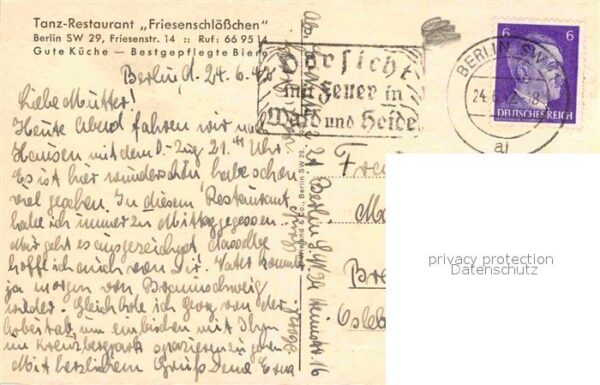 Tanz-Restaurant „Friesenschlößchen"
Berlin SW 29, Friesenstr. 14 :: Ruf: 66 95 14
Gute Küche — Bestgepflegte Biere
Berlin, d. 24.6.42
Liebe Mutter!
Heute Abend fahren wir nach
Hausen mit dem D-Zug 21.41 Uhr.
Es ist hier wunderschön, habe schon
viel gesehen. In diesem Restaurant
habe ich immer zu Mittag gegessen.
Mir geht es ausgezeichnet, dasselbe
hoffe ich auch von Dir. Vater kommt
ja morgen von Braunschweig
wieder. Gleich hole ich Georg von der
Arbeit ab, um ein bischen mit Ihm
im Kreuzbergpark spazieren zu gehen.
Mit herzlichem Gruß Deine Erna
Berlin SW 29
Vorsicht
mit Feuer in
Wald und Heide
BERLIN SW
24.6.42.-18
6 6
DEUTSCHES REICH
privacy protection
Datenschutz